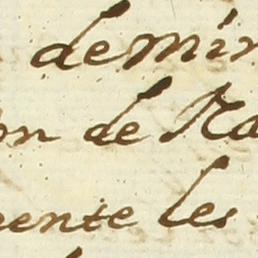 demin
on de Ra
mente les